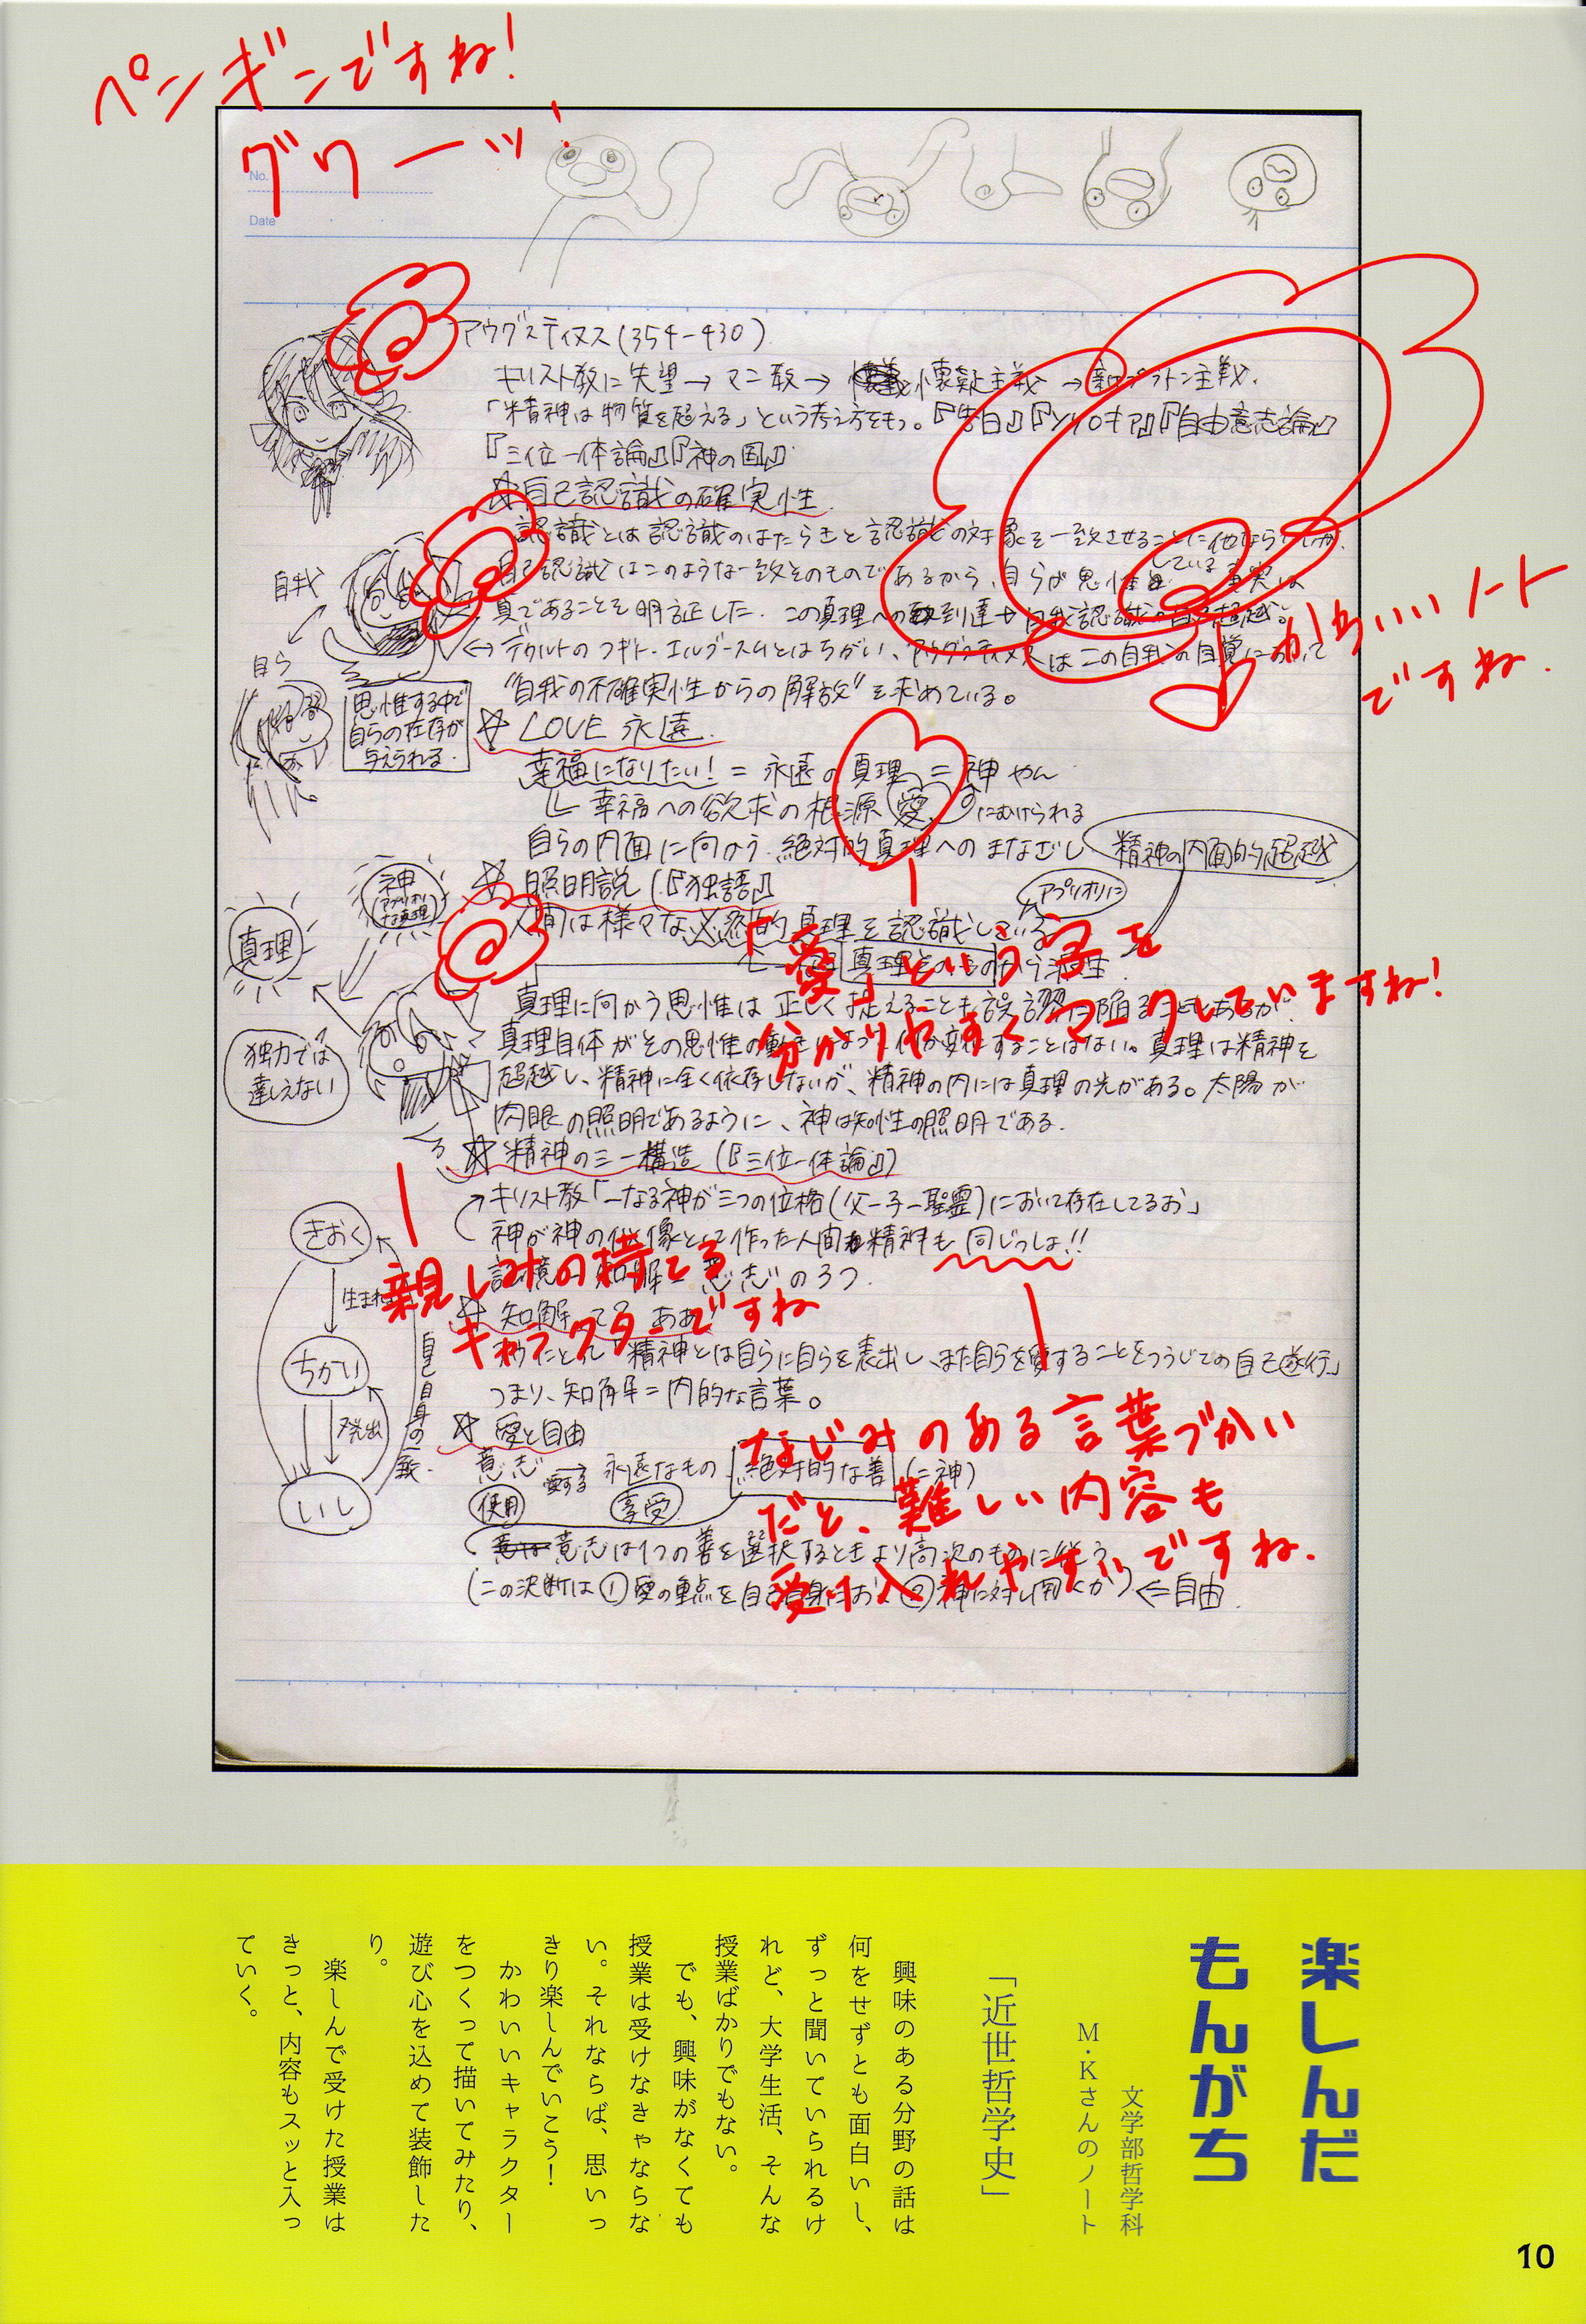 ペンギンですね!
グワーッ!
No.
Date
アウグスティヌス(354-430)
キリスト教に失望→マニ教→懐疑主義→新プラトン主義.
「精神は物質を超える」という考え方をもつ。『告白』『ソリロキア』『自由意志論』
『三位一体論』『神の国』
☆自己認識の確実性
認識とは認識のはたらきと認識の対象を一致させることに他なら
自己認識はこのような一致そのものであるから、自らが思惟している事実は
真であることを明証した. この真理への到達 自我認識の自己超越。
自我
自ら
思惟する中で
自らの存在が
与えられる.
デカルトのコギト・エルゴ・スムとはちがい、アウグスティヌスはこの自我の自覚において
"自我の不確実性からの解放"を求めている。
かわいいノート
ですね.
☆ LOVE 永遠
幸福になりたい! = 永遠の真理 = 神 やん
幸福への欲求の根源 愛 にむけられる
自らの内面に向かう.絶対的真理へのまなざし
精神の内面的超越
☆ 照明説 (『独語』)
アプリオリに
人間は様々な必然的真理を認識している
真理そのものから派生.
「愛」という字を
分かりやすくマークしていますね!
神
真理
独力では
達しえない
真理に向かう思惟は正しく捉えることも誤謬に陥ることもあるが、
真理自体がその思惟の動きによって何か変化することはない。真理は精神を
超越し、精神に全く依存しないが、精神の内には真理の光がある。太陽が
肉眼の照明であるように、神は知性の照明である.
☆ 精神の三一構造 (『三位一体論』)
キリスト教「一なる神が三つの位格(父ー子ー聖霊)において存在してるお」
神が神の似像として作った人間精神も同じっしょ!!
記憶 知解 意志 の3つ.
親しみの持てる
キャラクターですね
きおく
生まれ
ちかい
発出
いし
自己自身の一致.
☆ 知解ってなあに
「精神とは自らに自らを表出し、また自らを愛することをつうじての自己遂行」
つまり、知解=内的な言葉。
なじみのある言葉づかい
だと、難しい内容も
受け入れやすいですね.
☆ 愛と自由
意志 愛する→ 永遠なもの 絶対的な善 (=神)
使用 享受
意志は1つの善を選択するときより高次のものに従う
(この決断は①愛の重点を自己自身におく②神に対し開くか) ⇐自由.
楽しんだ
もんがち
文学部哲学科
M・Kさんのノート
「近世哲学史」
興味のある分野の話は
何をせずとも面白いし、
ずっと聞いていられるけ
れど、大学生活、そんな
授業ばかりでもない。
でも、興味がなくても
授業は受けなきゃならな
い。それならば、思いっ
きり楽しんでいこう!
かわいいキャラクター
をつくって描いてみたり、
遊び心を込めて装飾した
り。
楽しんで受けた授業は
きっと、内容もスッと入っ
ていく。
10